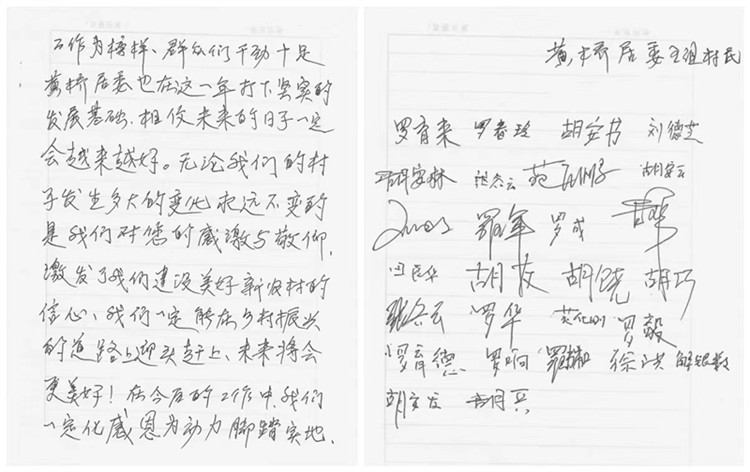 工作为榜样、群众们干劲十足
黄桥居委也在这一年打下坚实的
发展基础,相信未来的日子一定
会越来越好。无论我们的村
子发生多大的变化,永远不变的
是我们对您的感激与敬仰,
激发了我们建设美好新农村的
信心、我们一定能在乡村振兴
的道路上迎头赶上、未来将会
更美好!在今后的工作中,我们
一定化感恩为动力脚踏实地、
黄桥居委王组村民
罗育来 罗春玲 胡安书 刘德芝
胡安林 张冬云 胡安云
罗军 罗成
田应华 胡友 胡晓 胡巧
张冬云 罗华 罗毅
罗育德 罗响 徐洪
胡文友